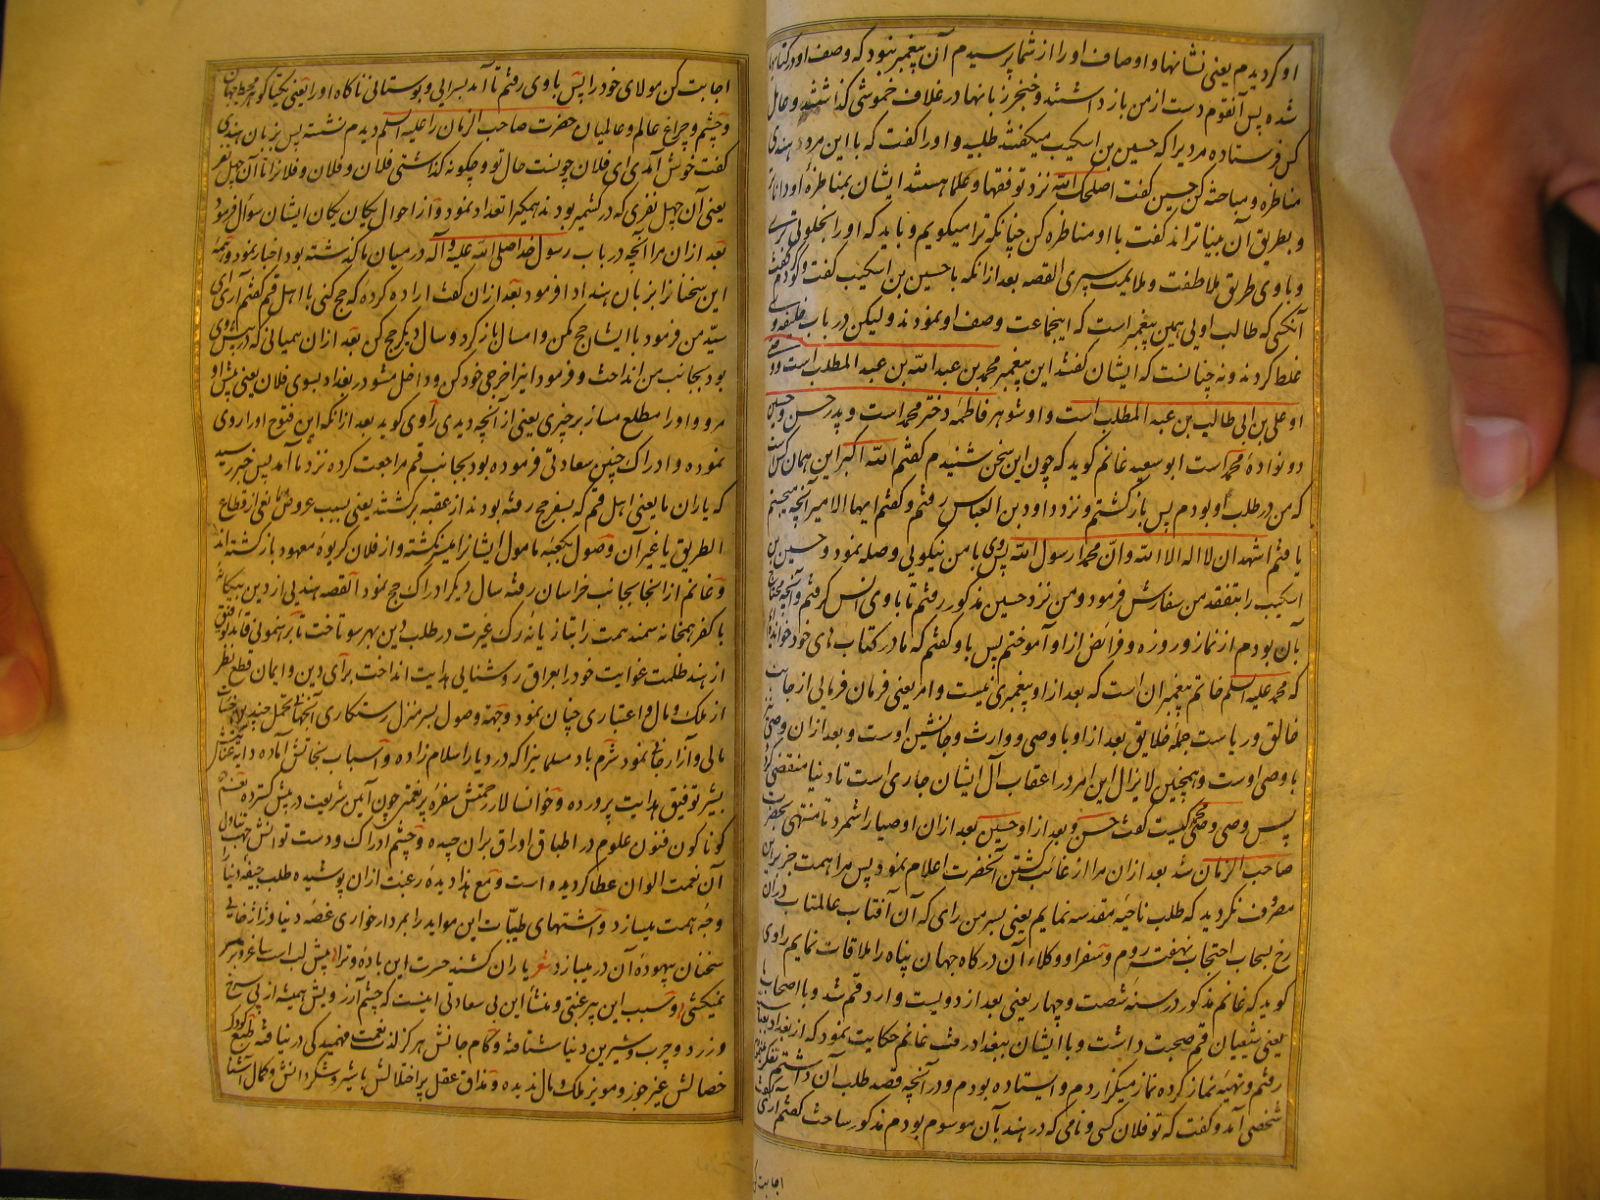 او کردیدم یعنی نشانها و اوصاف او را از شما پرسیدم آن پیغمبر نبود که وصف او در کتابها
شده پس آنقوم دست از من باز داشتند و خنجر زبانها در غلاف خموشی گذاشتند و عامل
کس فرستاده مردیرا که حسین بن اسکیب میکفتند طلبیده و او را کفت که با این مرد هندی
مناظره و مباحثه کن حسین کفت اصلحک الله نزد تو فقها و علما هستند ایشان بمناظرهٔ او داناتر
و بطریق آن بیناتراند کفت با او مناظره کن چنانکه ترا میکویم و باید که او را بخلوتی بری
و با وی طریق ملاطفت و ملایمت سپری القصه بعد از انکه با حسین بن اسکیب کفت و کو کردم کفت
آنکسی که طالب اویی همین پیغمبر است که اینجماعت وصف او نمودند ولیکن در باب خلیفه وی
غلط کردند و نه چنانست که ایشان کفتند این پیغمبر محمد بن عبد الله بن عبد المطلب است و وصی
او علی بن ابی طالب بن عبد المطلب است و او شوهر فاطمه دختر محمد است و پدر حسن و حسین
دو نوادهٔ محمد است ابو سعید غانم کوید که چون این سخن شنیدم کفتم الله اکبر این همان کس است
که من در طلب او بودم پس باز کشتم و نزد داود بن العباس رفتم و کفتم ایها الامیر آنچه میجستم
یافتم اشهد ان لا اله الا الله و ان محمدا رسول الله پس وی با من نیکویی و صله نمود و حسین بن
اسکیب را بتفقد من سفارش فرمود و من نزد حسین مذکور رفتم تا با وی انس کرفتم و آنچه محتاج
بآن بودم از نماز و روزه و فرائض از او آموختم پس باو کفتم که ما در کتاب های خود خوانده‌ایم
که محمد علیه السلم خاتم پیغمبران است که بعد از او پیغمبری نیست و امر یعنی فرمان فرمایی از جانب
خالق و ریاست جمله خلایق بعد از او با وصی و وارث و جانشین اوست و بعد از ان وصی
با وصی اوست و همچنین لا یزال این امر در اعقاب آل ایشان جاری است تا دنیا منقضی کردد
پس وصی وصی محمد کیست کفت حسن و بعد از او حسین بعد از ان اوصیا را شمرد تا منتهی بحضرت
صاحب الزمان شد بعد از ان مرا از غائب کشتن آنحضرت اعلام نمود پس مرا همت جز بر این
مصروف نکردید که طلب ناحیه مقدسه نمایم یعنی بسر من رای که آن آفتاب عالمتاب در ان
رخ بسحاب احتجاب نهفت روم و سفرا و وکلاء آن درکاه جهان پناه را ملاقات نمایم راوی
کوید که غانم مذکور در سنه شصت و چهار یعنی بعد از دویست وارد قم شد و با اصحاب ما
یعنی شیعیان قم صحبت داشت و با ایشان ببغداد رفت غانم حکایت نمود که از بغداد
رفتم و تهیه نماز کرده نماز میکزاردم و ایستاده بودم و در آنچه قصد طلب آن داشتم تفکر
شخصی آمد و کفت که تو فلان کسی و نامی که در هند بآن موسوم بودم مذکور ساخت کفتم آری کفت
اجابت
اجابت کن مولای خود را پس با وی رفتم تا آمد بسرایی و بوستانی ناکاه او را یعنی
و چشم و چراغ عالم و عالمیان حضرت صاحب الزمان را علیه السلم دیدم نشسته پس بزبان هندی
کفت خوش آمدی ای فلان چونست حال تو و چکونه کذاشتی فلان و فلان و فلانرا تا آن چهل نفر
یعنی آن چهل نفری که در کشمیر بودند همکیرا تعداد نمود و از احوال یکان یکان ایشان سوال فرمود
بعد از ان مرا آنچه در باب رسول خدا صلی الله علیه و آله در میان ما کذشته بود اخبار نمود و همه
این سخنانرا بزبان هند ادا فرمود بعد از ان کفت اراده کرده که حج کنی با اهل قم کفتم آری ای
سید من فرمود با ایشان حج مکن و امسال باز کرد و سال دیکر حج کن بعد از ان همیانی که در پیش روی
بود بجانب من انداخت و فرمود اینرا خرجی خود کن و داخل مشو در بغداد بسوی فلان یعنی پیش او
مرو و او را مطلع مساز بر چیزی یعنی از آنچه دیدی راوی کوید بعد از انکه این فتوح او را روی
نموده و ادراک چنین سعادتی فرموده بود بجانب قم مراجعت کرده نزد ما آمد پس خبر رسید
که یاران ما یعنی اهل قم که بسفر حج رفته بودند از عقبه برکشتند یعنی بسبب عروض مانعی از قطاع
الطریق یا غیر آن وصول بکعبه مامول ایشانرا میسر نکشته و از فلان کریوهٔ معهود باز کشته اند
و غانم از انجا بجانب خراسان رفته سال دیکر ادراک حج نمود القصه هندیی از دین بیکانه
با کفر همخانه سمند همت را بتازیانه رک غیرت در طلب دین بهر سو تاخت تا برهنمونی قاید توفیق
از هند ظلمت غوایت خود را بعراق روشنایی هدایت انداخت برای دین و ایمان قطع نظر
از ملک و مال و اعتباری چنان نمود و جهة وصول بسر منزل رستکاری آنجهانی تحمل چندین
مالی و آزار جانی نمود شرم باد مسلمانیرا که در دیار اسلام زاده و اسباب نجاتش آماده دایه
بشیر توفیق هدایت پرورده و خوانسالار رحمتش سفرهٔ پر نعمتی چون آیین شریعت در پیش کسترده
کوناکون فنون علوم در اطباق اوراق بران چیده و چشم ادراک و دست توانش جهت تناول
آن نعمت الوان عطا کردیده است و مع هذا دیدهٔ رغبت از ان پوشیده طلب جیفه دنیا را
وجه همت میسازد و اشتهای طیبات این مواید را بمردارخواری غصه دنیا و ژاژخایی
سخنان بیهودهٔ آن در میبازد شعر یاران کشند حسرت این باده و ترا پیش لب است ساغر و
نمیکشی و سبب این بیرغبتی و منشأ این بی سعادتی اینست که چشم آرزویش همیشه از پی سرخ
و زرد و چرب و شیرین دنیا شتافته و کام جانش هرکز لذت نعمت فهمیدکی در نیافته طبع کودک
خصالش غیر جوز و مویز ملک و مال ندیده و مذاق عقل پر اختلالش با شیر و شکر دانش و کمال آشنا